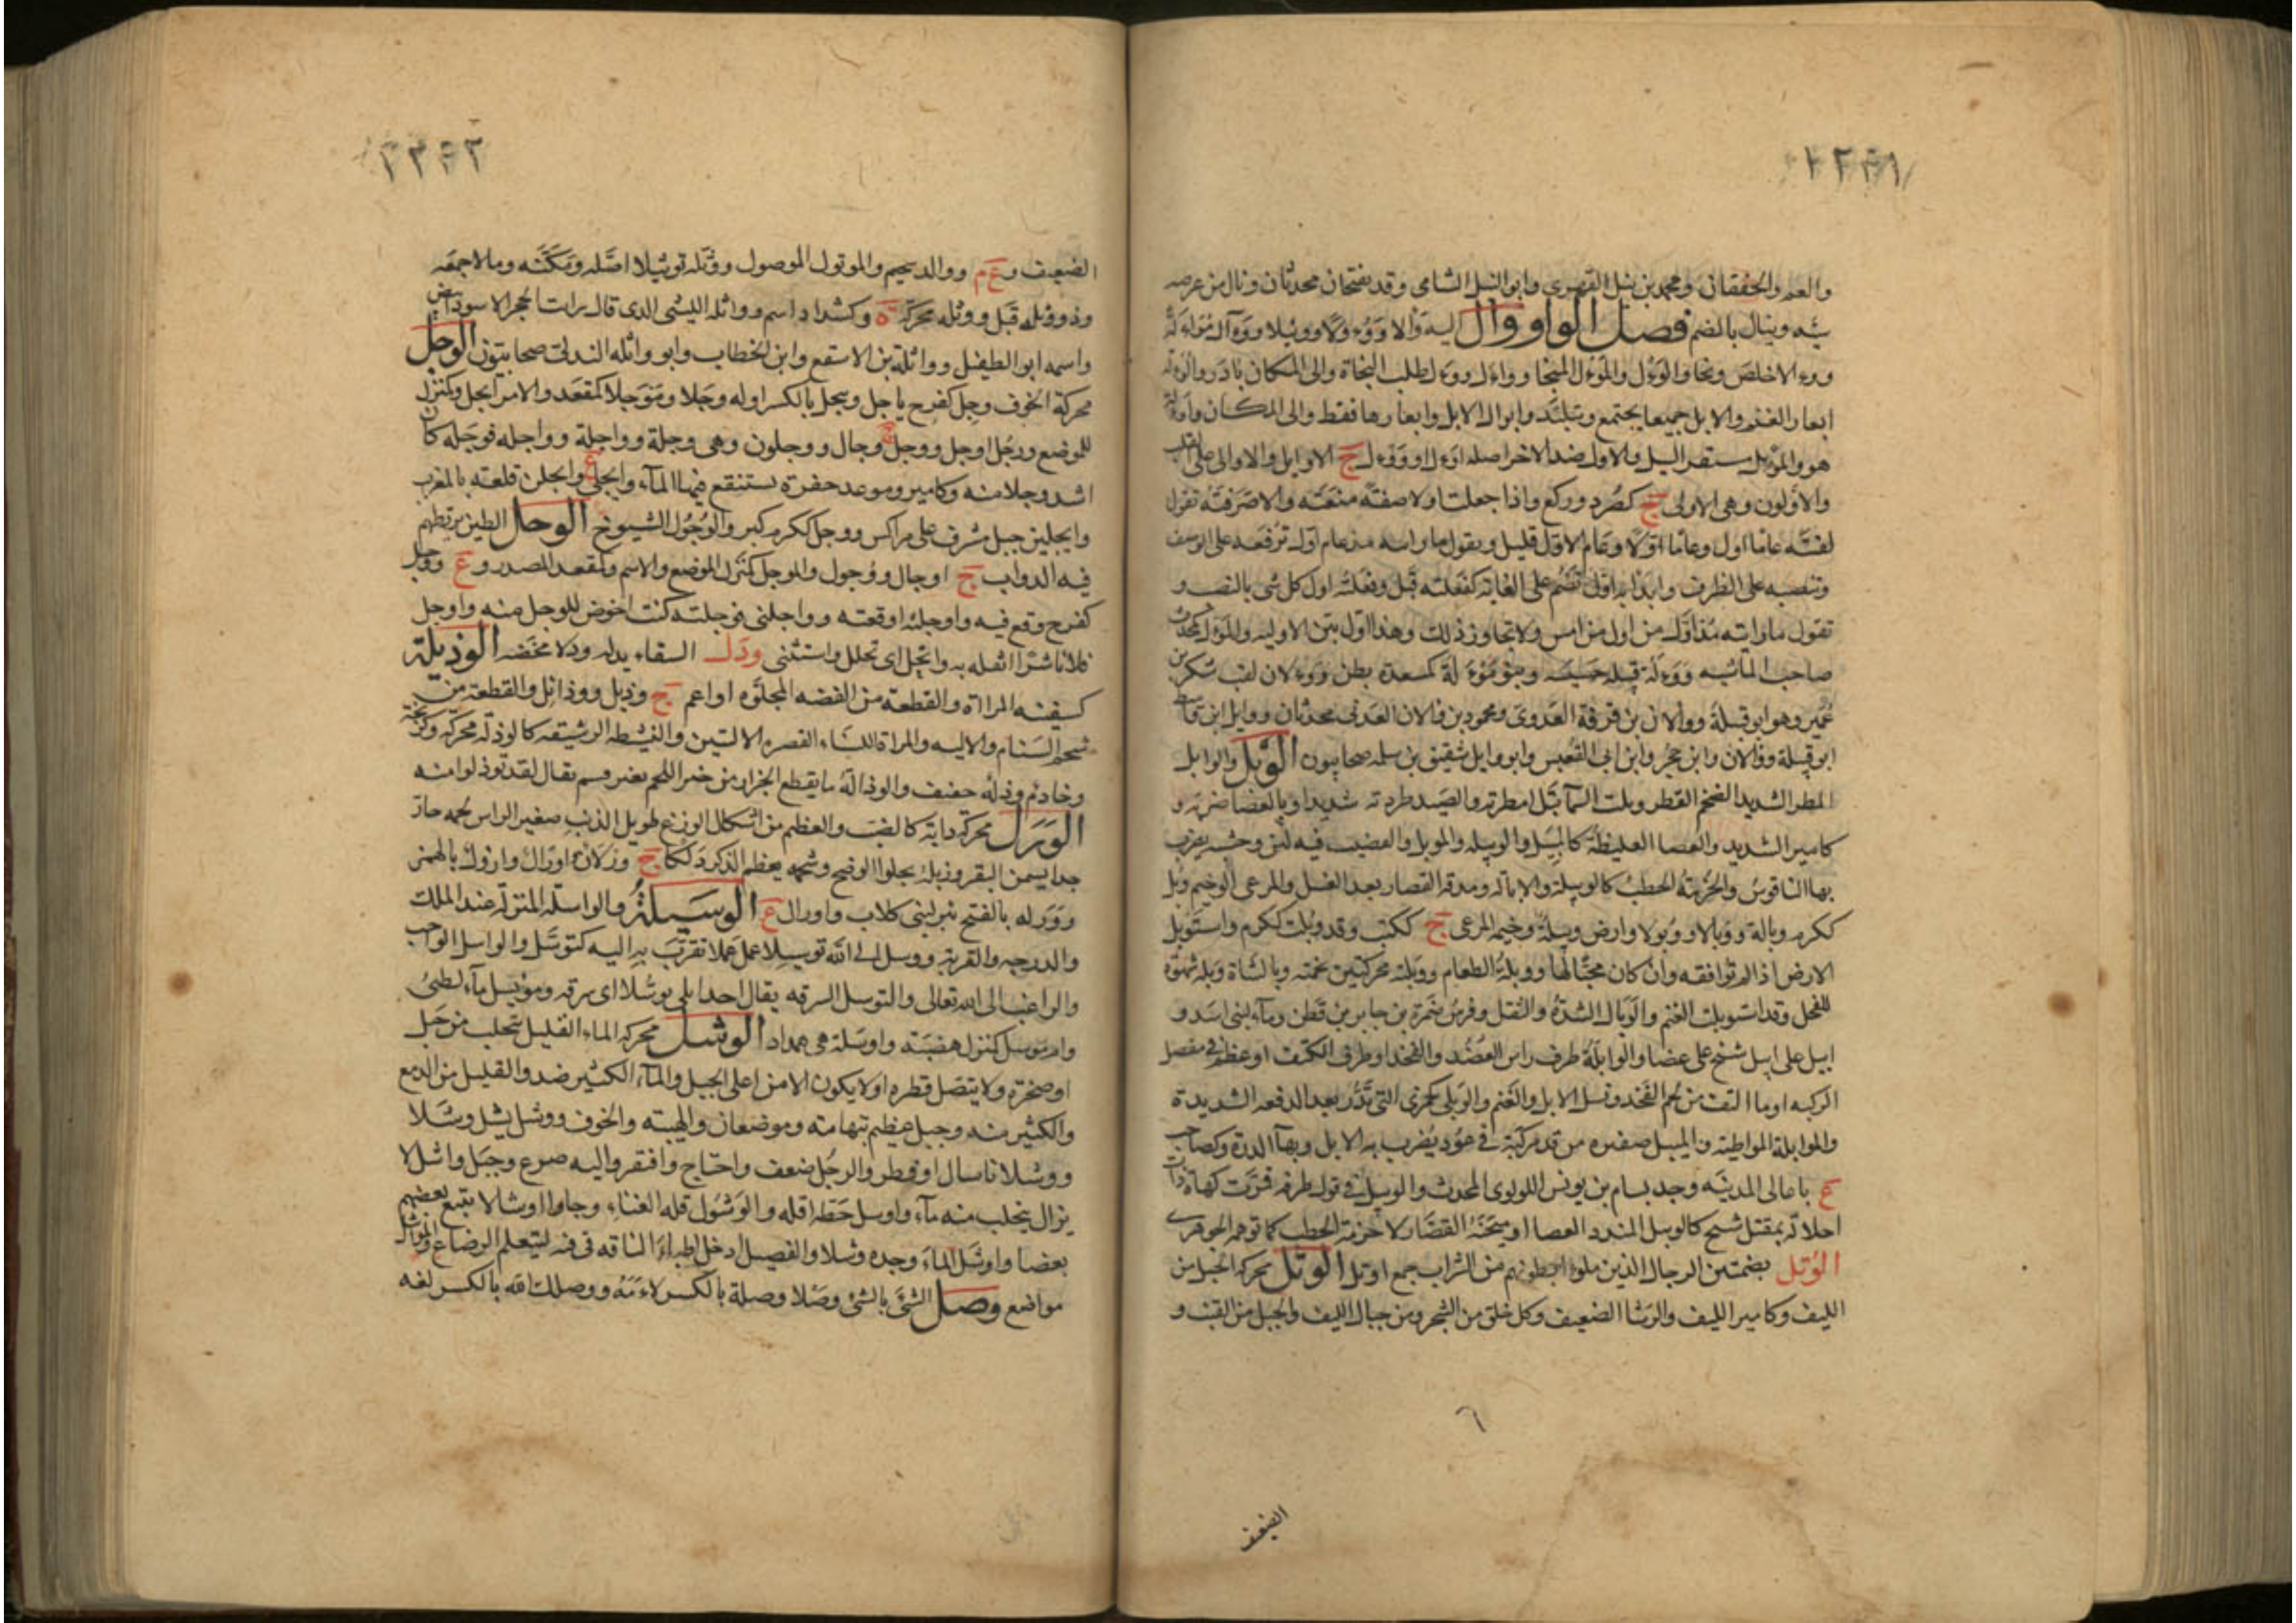 والعم والخفقان ومحمد بن نبل القهرى وابو النبل الشامى وقد يفتحان محدثان ونال من عرضه
ينيله وينال بالضم فصل الواو وأل اليه وألا ووؤلا ووئيلا وواءل
والوأل والموئل المنجا وواءل ووأل لطلب النجاة والى المكان بادر والوألة
ابعار الغنم والابل جميعا يجتمع وتبلد وابوال الابل وابعارها فقط والى المكان
هو والموئل مستقر السيل والاول ضد الاخر اصله اوءل او ووءل ج الاوائل والاوالى على القلب
والاولون وهى الاولى ج كصرد وركع واذا جعلت اولا صفة منعته والا صرفته تقول
لقيته عاما اول وعاما اولا وعام الاول قليل وتقول ما رايته مذ عام اول ترفعه على الوصف
وتنصبه على الظرف وابدا به اول تضم على الغاية كفعلته قبل وفعلته اول كل شى بالنصب و
تقول ما رايته مذ اول من اول من امس ولا تجاوز ذلك وهذا اول بين الاولية
صاحب الماشيه ووألة قبيلة خسيسه وبنو موءلة كمسعدة بطن ووءلان لقب شكر بن
عمير وهو ابو قبيلة ووألان بن قرفة العدوى ومحمود بن والان العدنى محدثان ووايل ابن قاسط
ابو قبيلة ووالان وابن حجر وابن ابى القعيس وابو وايل شقيق بن سلمه صحابيون الوبل والوابل
المطر الشديد الضخم القطر وبلت السمآ تبل امطرته والصيد طرده شديدا وبالعصا ضربه و
كامير الشديد والعصا الغليظة كالميبل والوبيله والموبل والقضيب فيه لين وخشبه يضرب
بها الناقوس والحزمة الحطب كالوبيلة والابالة ومدقة القصار بعد الغسل والمرعى الوخيم وبل
ككرم وبالة ووبالا ووبولا وارض وبيلة وخيمة المرعى ج ككتب وقد وبلت ككرم واستوبل
الارض اذا لم توافقه وان كان محبا لها ووبلة الطعام ووبلته محركتين تخمته وبالشاة وبلة شهوة
للفحل وقد استوبلت الغنم والوبال الشدة والثقل وفرس ضمرة بن جابر بن قطن ومآء لبنى اسد و
ابيل على ابيل شيخ على عصا والوابلة طرف راس العضد والفخذ او طرف الكتف او عظم فى مفصل
الركبه او ما التف من لحم الفخذ ونسل الابل والغنم والوبلى كجمزى التى تدر بعد الدفعه الشديدة
والموابلة المواظبة والميبل ضفيره من قد مركبة فى عود يضرب به الابل وبهآ الدرة وكصاحب
ع باعالى المدينه وجد بسام بن يونس اللولوى المحدث والوبيل فى قول طرفه فمرت كهاة ذات
الوتل بضمتين الرجال الذين ملوءا بطونهم من الشراب جمع اوتل الوثل محركه الحبل من
الليف وكامير الليف والرشا الضعيف وكل خلق من الشجر ومن حبال الليف والحبل من القنب و
الضعيف
الضعيف و ع م ووالد سحيم والموثول الموصول ووثله توثيلا اصله ومكنه ومالا جمعه
وذو وثلة قيل ووثله محركة ة وكشداد اسم وواثله الليثى الذى قال رايت الحجر الاسود ابيض
واسمه ابو الطفيل وواثلة بن الاسقع وابن الخطاب وابو واثله الهذلى صحابيون الوجل
محركة الخوف وجل كفرح ياجل وييجل بالكسر اوله وجلا وموجلا كمقعد والامر ايجل وكمنزل
للموضع ورجل اوجل ووجل ج وجال ووجلون وهى وجلة وواجلة وواجله فوجله كان
اشد وجلا منه وكامير وموعد حفرة يستنقع فيها المآء وايجلى ع وايجلن قلعة بالمغرب
وايجلين جبل مشرف على مراكش ووجل ككرم كبر والوجول الشيوخ الوحل الطين يرتطم
فيه الدواب ج اوحال ووحول والموحل كمنزل الموضع والاسم وكمقعد المصدر و ع ووحل
كفرح وقع فيه واوحلته اوقعته وواحلنى فوحلته كنت اخوض للوحل منه واوحل
فلانا شرا اثقله به واتحل اى تحلل واستثنى ودل السقاء يدله ودلا مخضه الوذيلة
كسفينة المراة والقطعة من الفضه المجلوه او اعم ج وذيل ووذائل والقطعة من
شحم السنام والاليه والمراة القصيره الاليتين والنشيطه الرشيقه كالوذلة محركة
وخادم وذلة خفيف والوذالة ما يقطع الجزار من اللحم بغير قسم يقال لقد توذلوا منه
الورل محركة دابة كالضب والعظيم من اشكال الوزغ طويل الذنب صغير الراس لحمه حار
جدا يسمن البقر وزبله يجلوا الوضح وشحمه يعظم الذكر دلكا ج ورلان واورال وارول بالهمز
وورله بالفتح بئر لبنى كلاب واورال ع الوسيلة والواسلة المنزلة عند الملك
والدرجه والقربة ووسل الى الله توسيلا عمل عملا تقرب به اليه كتوسل والواسل الواجب
والراغب الى الله تعالى والتوسل السرقه يقال اخذ ابلى توسلا اى سرقه ومويسل مآء لطيئ
وام موسل كمنزل هضبة واوسلة هى همدان الوشل محركة الماء القليل يتحلب من جبل
او صخرة ولا يتصل قطره او لا يكون الا من اعلى الجبل والمآء الكثير ضد والقليل من الدمع
والكثير منه وجبل عظيم بتهامة وموضعان والهيبة والخوف ووشل يشل وشلا
ووشلانا سال او قطر والرجل ضعف واحتاج وافتقر واليه ضرع وجبل واشل لا
يزال يتحلب منه مآء واوشل حظه اقله والوشول قله الغناء وجاوا اوشالا يتبع بعضهم
بعضا واوشل الماء وجده وشلا والفصيل ادخل اطباء الناقه فى فيه ليتعلم الرضاع
مواضع وصل الشئ بالشئ وصلا وصلة بالكسر لاءمه ووصلك الله بالكسر لغه